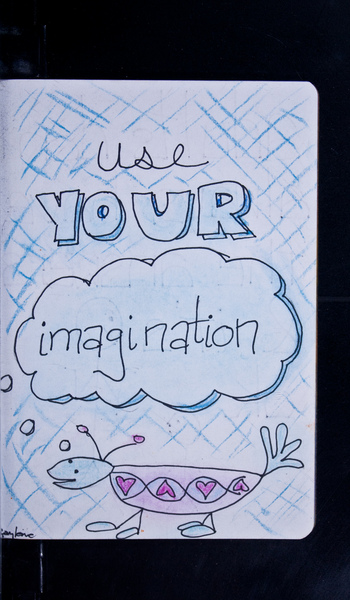 Use
YOUR
imagination